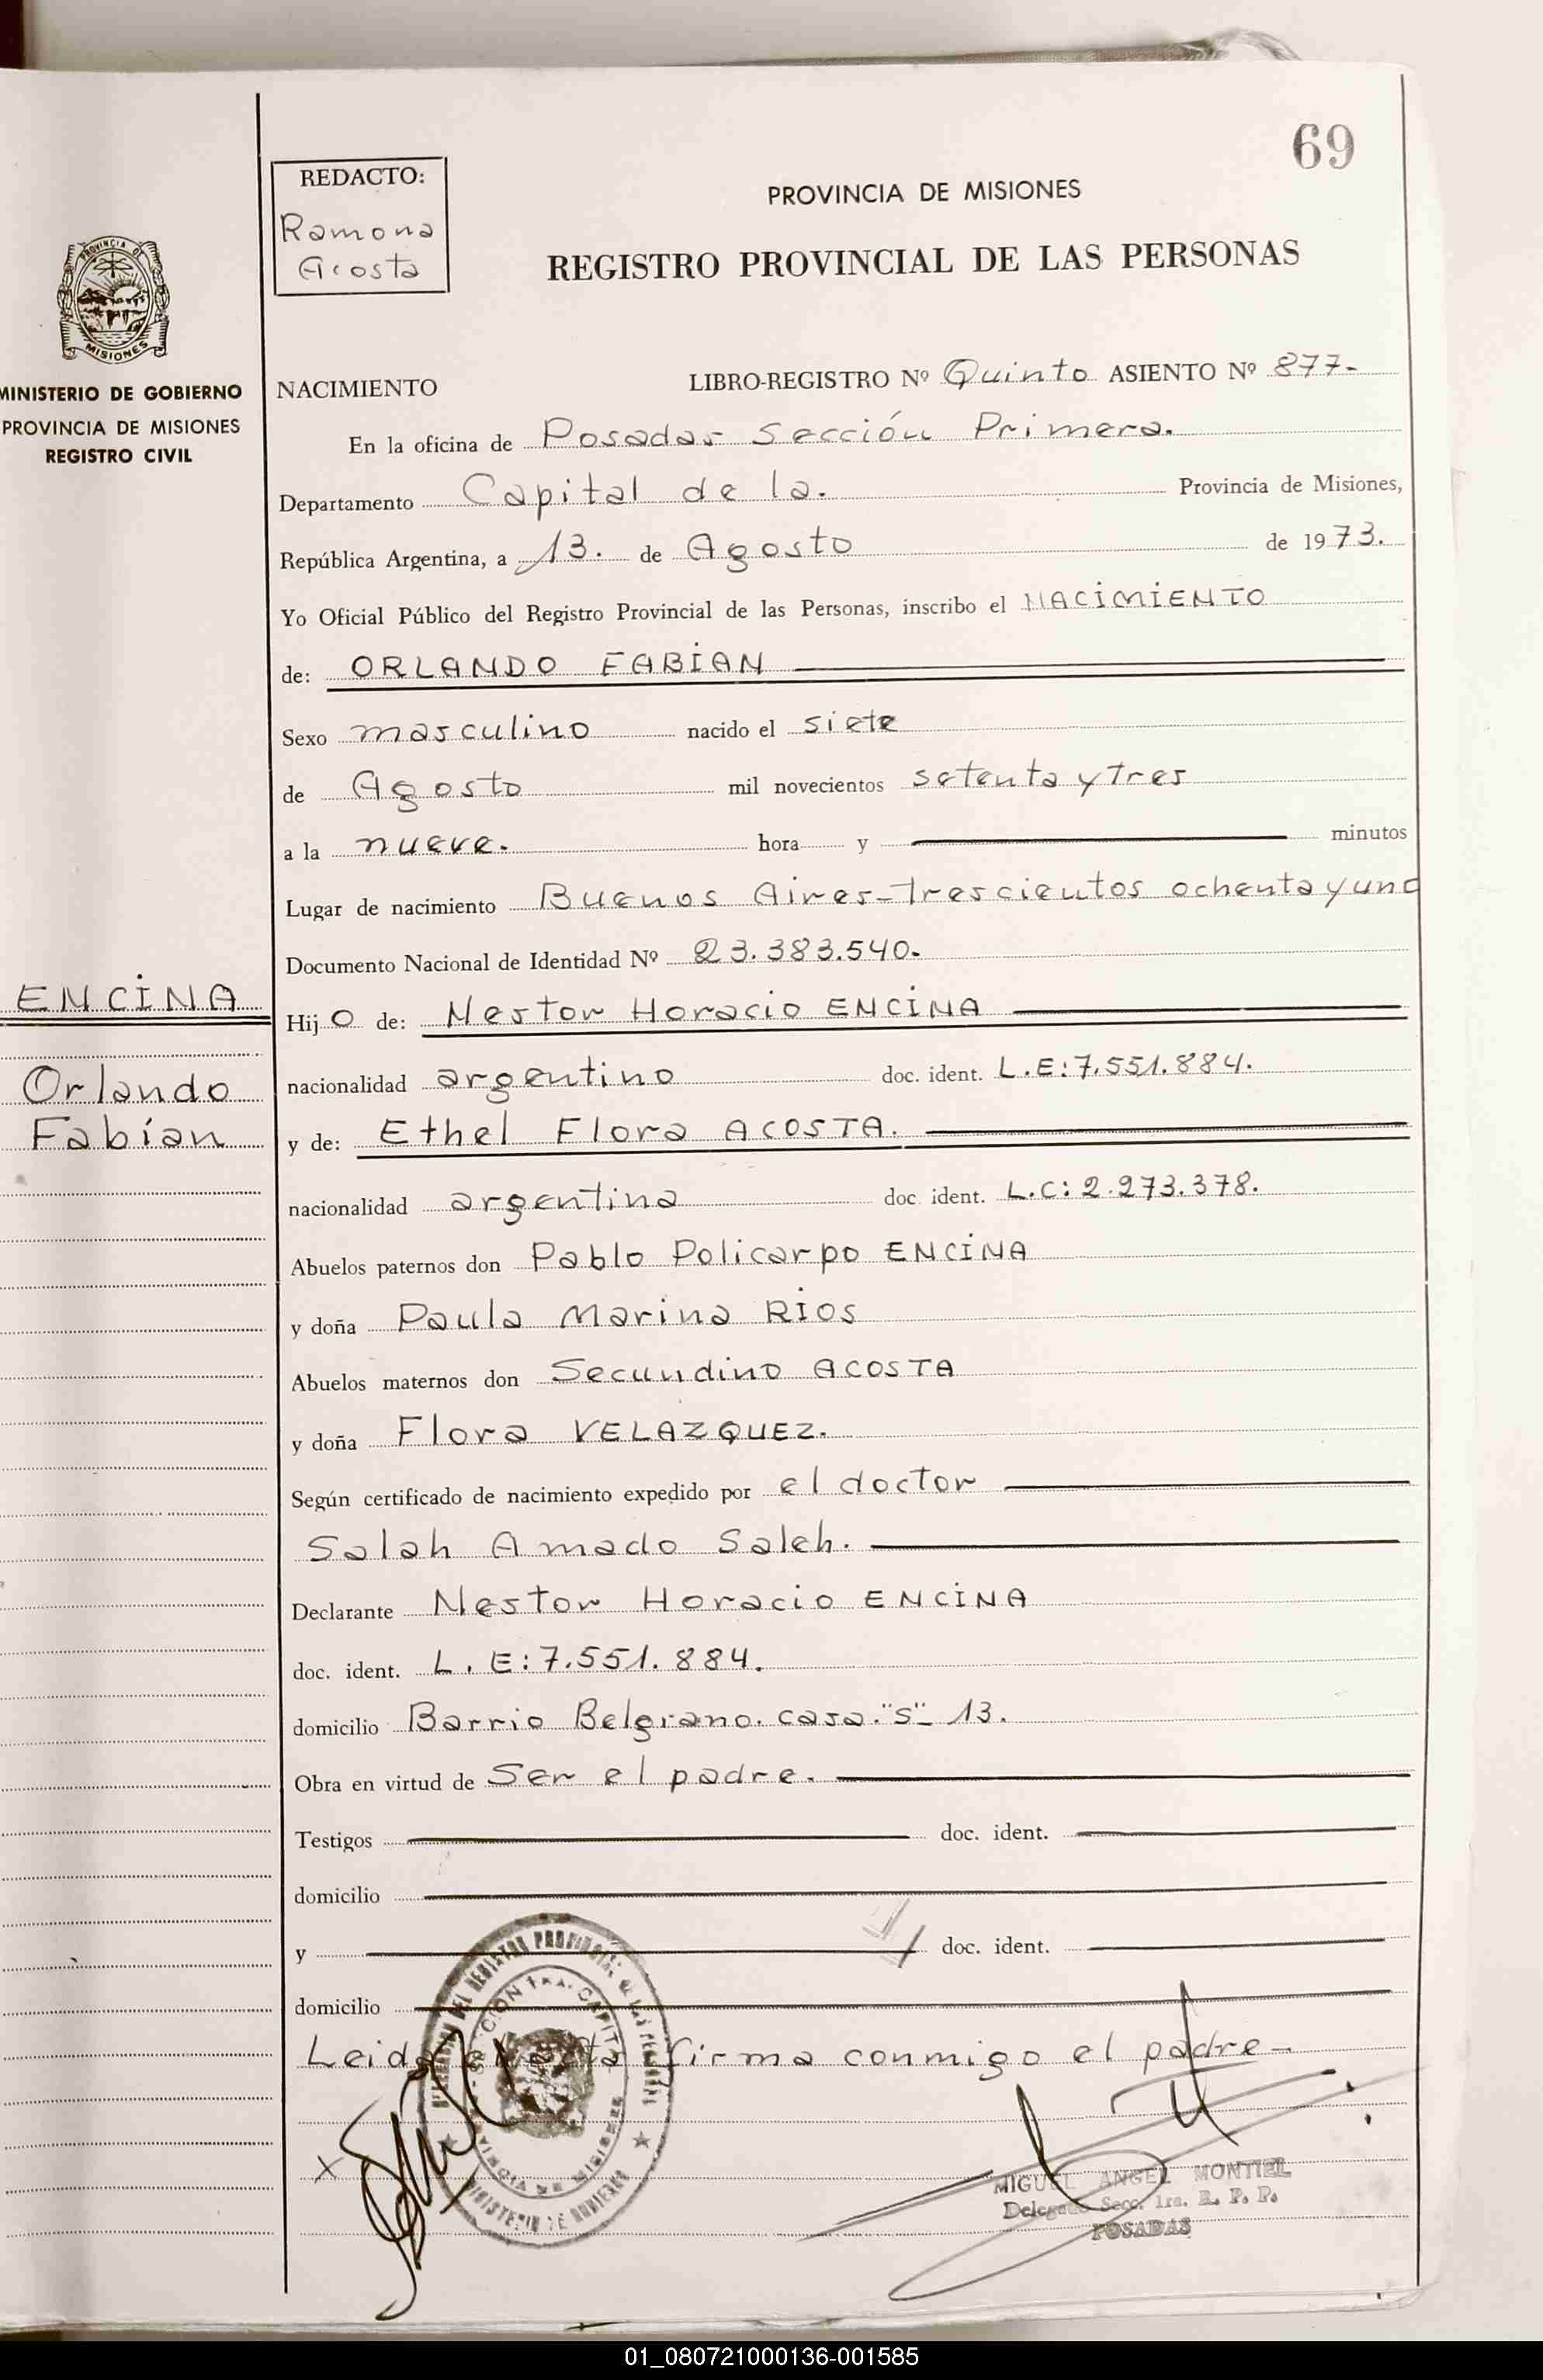 69
REDACTO:
Ramona
Acosta
PROVINCIA DE MISIONES
REGISTRO PROVINCIAL DE LAS PERSONAS
PROVINCIA DE
MISIONES
MINISTERIO DE GOBIERNO
PROVINCIA DE MISIONES
REGISTRO CIVIL
NACIMIENTO LIBRO-REGISTRO Nº Quinto ASIENTO Nº 877-
En la oficina de Posadas Sección Primera.
Departamento Capital de la. Provincia de Misiones,
República Argentina, a 13. de Agosto de 1973.
Yo Oficial Público del Registro Provincial de las Personas, inscribo el NACIMIENTO
de: ORLANDO FABIAN
Sexo masculino nacido el siete
de Agosto mil novecientos setenta y Tres
a la nueve. hora y minutos
Lugar de nacimiento Buenos Aires-Trescientos ochenta y uno
Documento Nacional de Identidad Nº 23.383.540.
ENCINA
Hijo de: Nestor Horacio ENCINA
Orlando
Fabian
nacionalidad argentino doc. ident. L.E:7.551.884.
y de: Ethel Flora ACOSTA.
nacionalidad argentina doc. ident. L.C: 2.273.378.
Abuelos paternos don Pablo Policarpo ENCINA
y doña Paula Marina RIOS
Abuelos maternos don Secundino ACOSTA
y doña Flora VELAZQUEZ.
Según certificado de nacimiento expedido por el doctor
Salah Amado Saleh.
Declarante Nestor Horacio ENCINA
doc. ident. L.E:7.551.884.
domicilio Barrio Belgrano. casa."S"- 13.
Obra en virtud de Ser el padre.
Testigos doc. ident.
domicilio
y doc. ident.
domicilio
Leida firma conmigo el padre-
MIGUEL ANGEL MONTIEL
Delegado Secc. 1ra. R. P. P.
POSADAS
01_080721000136-001585